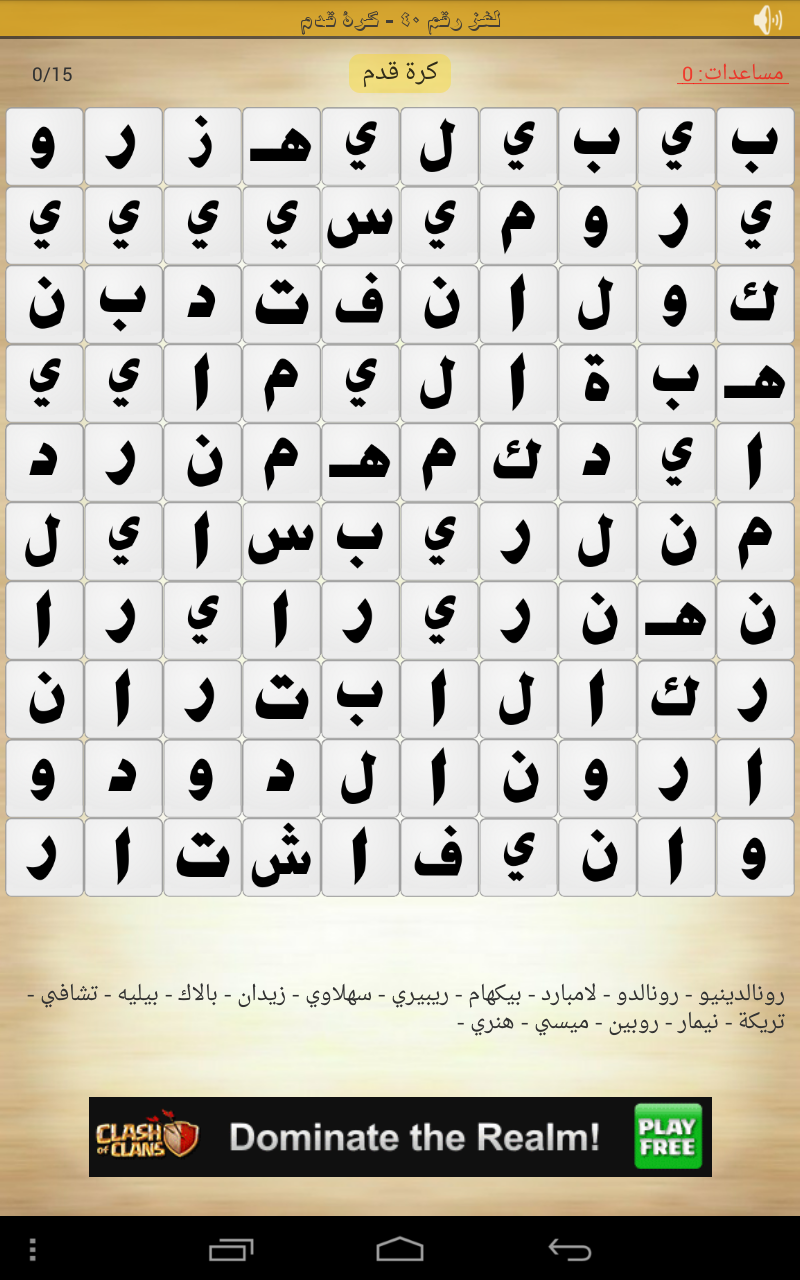 لغز رقم ٤٠ - كرة قدم
مساعدات: 0
كرة قدم
0/15
ب ي ب ي ل ي هـ ز ر و
ي ر و م ي س ي ي ي ي
ك و ل ا ن ف ت د ب ن
هـ ب ة ا ل ي م ا ي ي
ا ي د ك م هـ م ن ر د
م ن ل ر ي ب س ا ي ل
ن هـ ن ر ي ر ا ي ر ا
ر ك ا ل ا ب ت ر ا ن
ا ر و ن ا ل د و د و
و ا ن ي ف ا ش ت ا ر
رونالدينيو - رونالدو - لامبارد - بيكهام - ريبيري - سهلاوي - زيدان - بالاك - بيليه - تشافي -
تريكة - نيمار - روبين - ميسي - هنري -
CLASH of CLANS
Dominate the Realm!
PLAY FREE